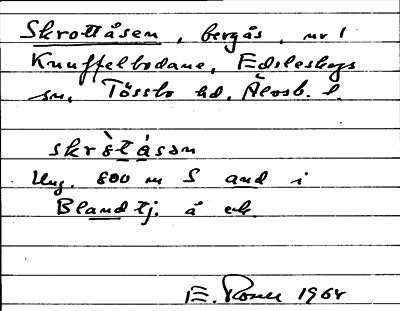 Skrottåsen, bergås, nr 1
Knuffelbodane, Edsleskogs
sn, Tössbo hd, Älvsb. l.
skrò̱tá̱sən
Ung. 800 m S and i
Blandtj. å ek.
E. 1964